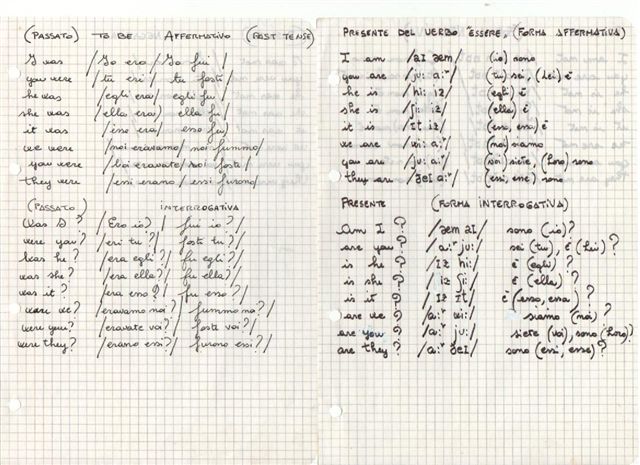 (PASSATO) TO BE AFFERMATIVO (PAST TENSE)
I was /Io ero/ Io fui/
you were /tu eri/ tu fosti/
he was /egli era/ egli fu/
she was /ella era/ ella fu/
it was /esso era/ esso fu/
we were /noi eravamo/ noi fummo/
you were /voi eravate/ voi foste/
they were /essi erano/ essi furono/
(PASSATO) INTERROGATIVA
Was I? /Ero io?/ fui io?/
were you? /eri tu?/ fosti tu?/
was he? /era egli?/ fu egli?/
was she? /era ella?/ fu ella?/
was it? /era esso?/ fu esso?/
were we? /eravamo noi?/ fummo noi?/
were you? /eravate voi?/ foste voi?/
were they? /erano essi?/ furono essi?/
PRESENTE DEL VERBO "ESSERE, (FORMA AFFERMATIVA)
I am /aI æm/ (io) sono
you are /ju: a:ʳ/ (tu) sei, (Lei) è
he is /hi: iz/ (egli) è
she is /ʃi: iz/ (ella) è
it is /It iz/ (esso, essa) è
we are /wi: a:ʳ/ (noi) siamo
you are /ju: a:ʳ/ (voi) siete, (Loro) sono
they are /ðeI a:ʳ/ (essi, esse) sono
PRESENTE (FORMA INTERROGATIVA)
Am I? /æm aI/ sono (io)?
are you? /a:ʳ ju:/ sei (tu), è (Lei)?
is he? /Iz hi:/ è (egli)?
is she? /iz ʃi:/ è (ella)?
is it? /Iz It/ è (esso, essa)?
are we? /a:ʳ wi:/ siamo (noi)?
are you? /a:ʳ ju:/ siete (voi), sono (Loro)?
are they? /a:ʳ ðeI/ sono (essi, esse)?